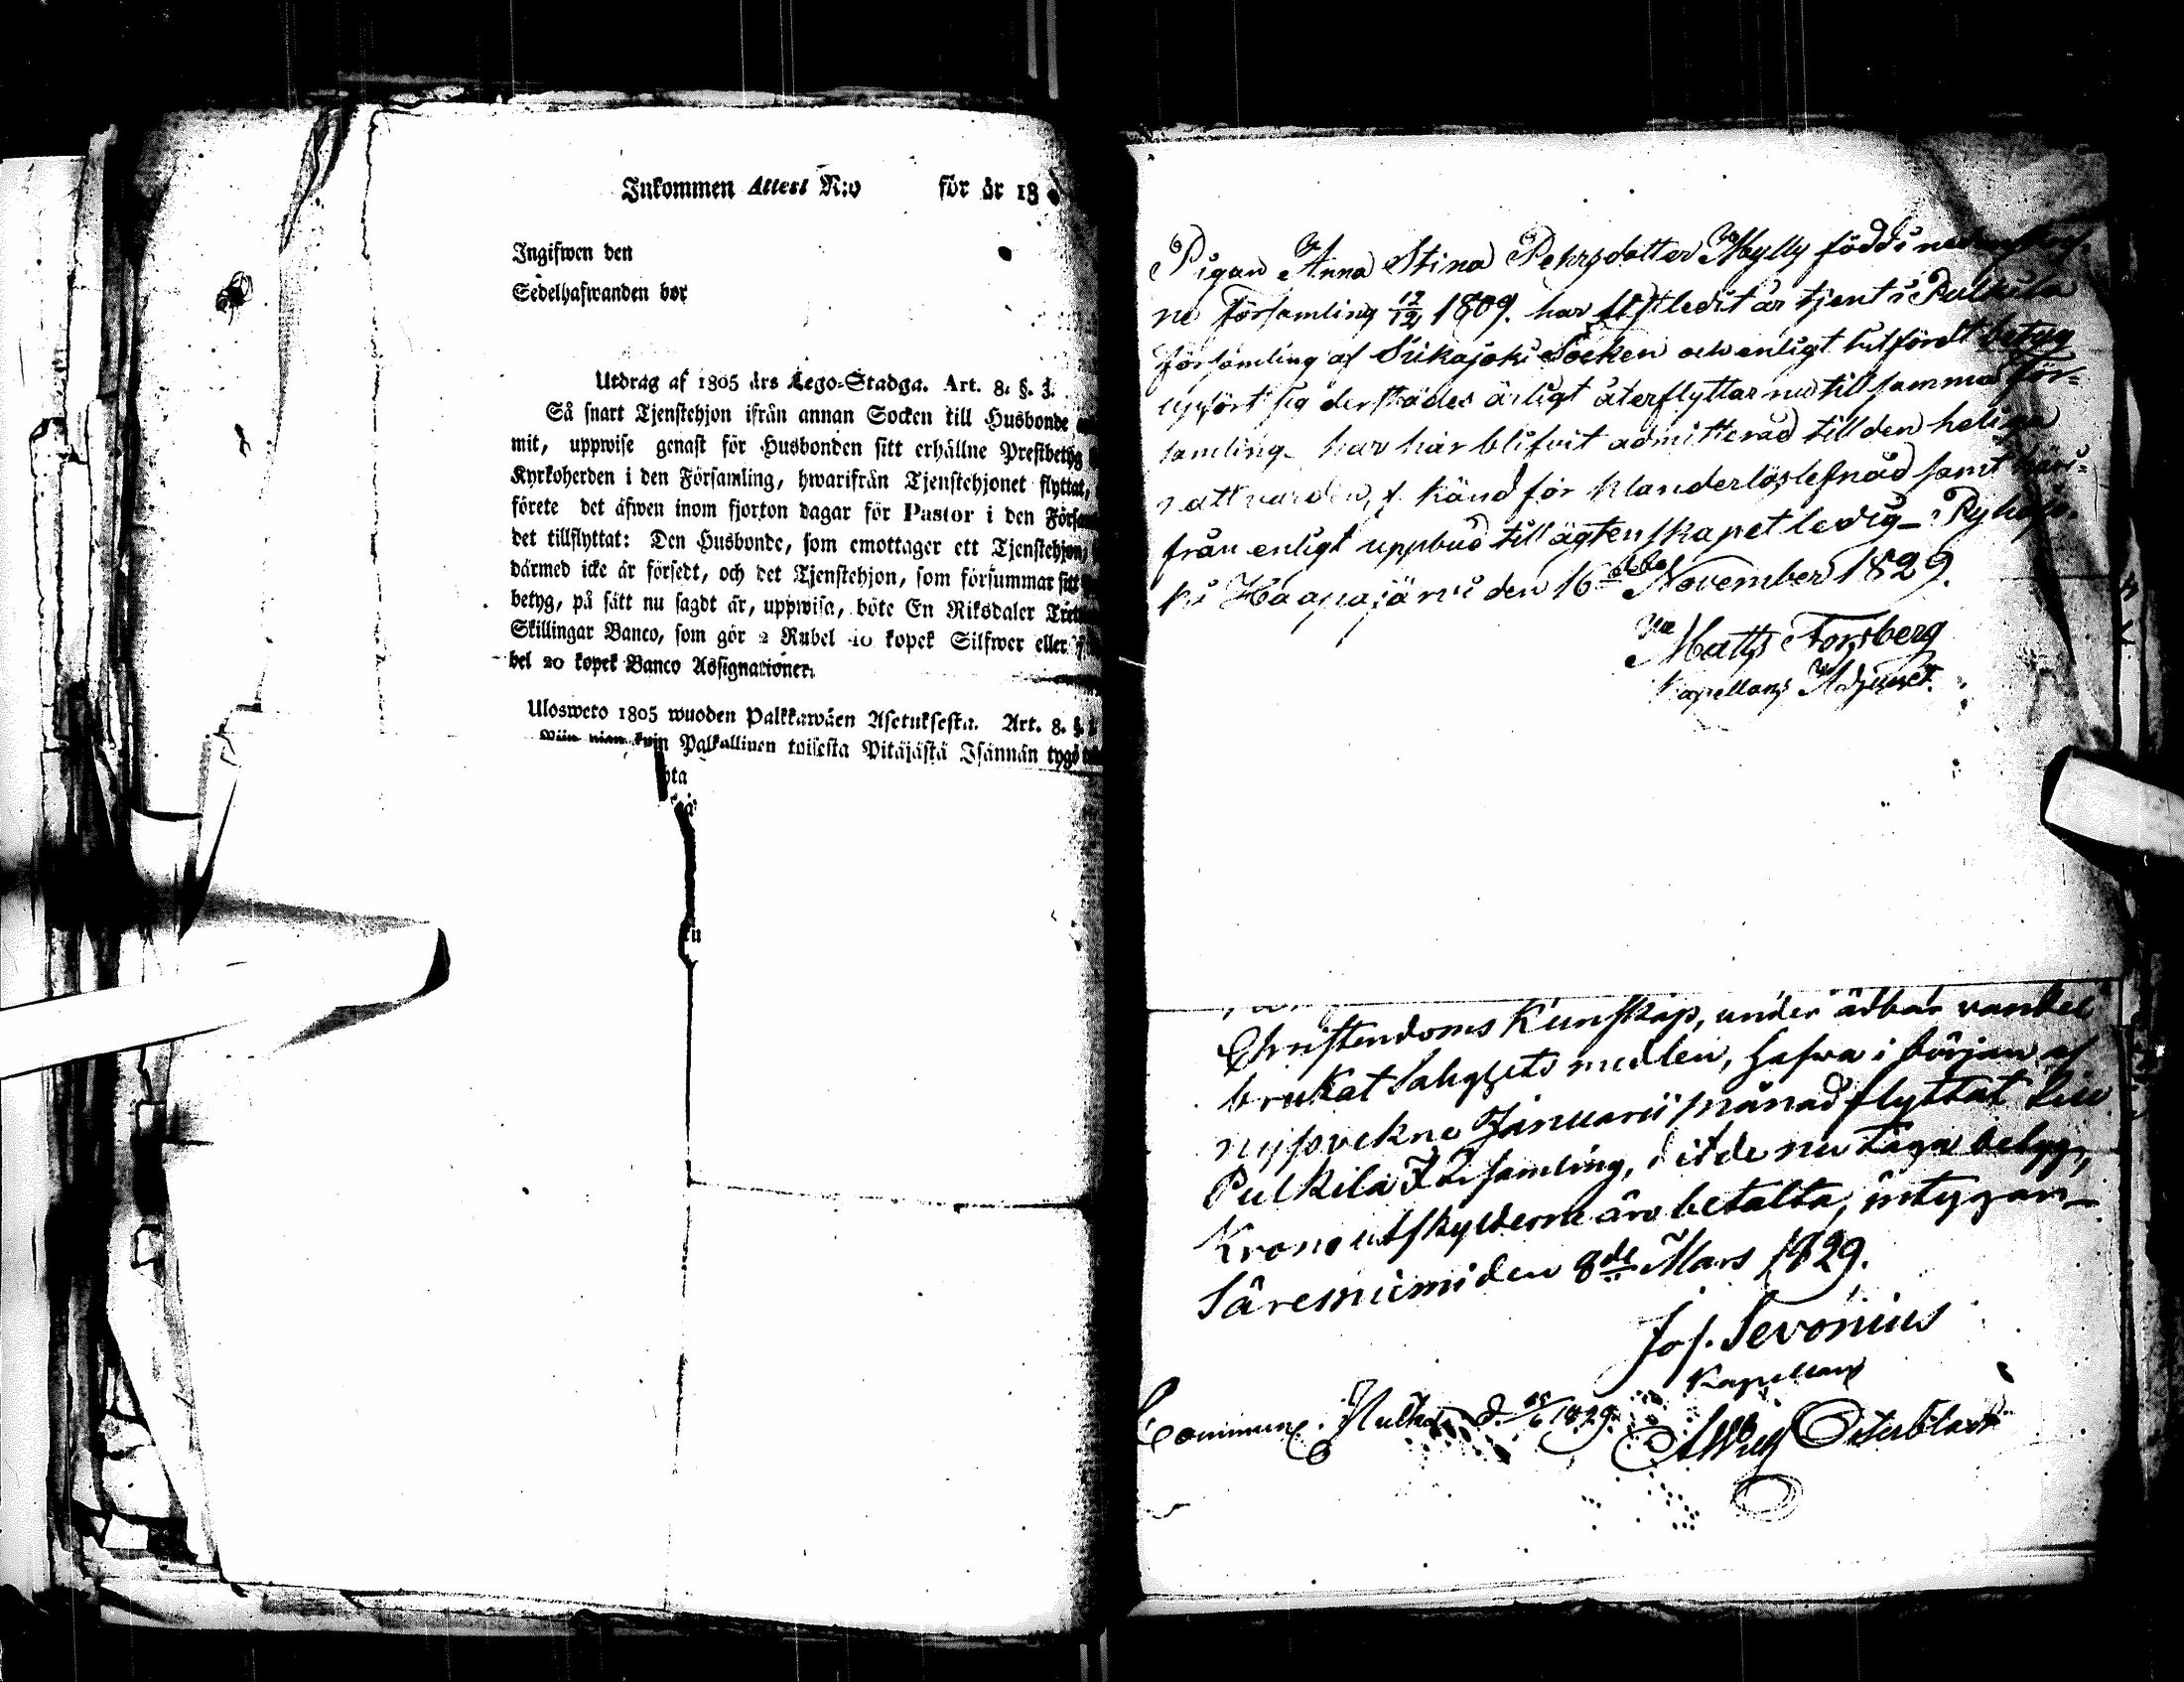 Inkommen Attest N:o för år 18
Ingifwen den
Sedelhafwanden bor
Utdrag af 1805 års Lego-Stadga. Art. 8. §. 3.
Så snart Tjenstehjon ifrån annan Socken till Husbonde
mit, uppwise genast för Husbonden sitt erhållne Prestbetyg
Kyrkoherden i den Församling, hwarifrån Tjenstehjonet flyttat,
förete det äfwen inom fjorton dagar för Pastor i den Försa
det tillflyttat: Den Husbonde, som emottager ett Tjenstehjon,
därmed icke är försedt, och det Tjenstehjon, som försummar sitt
betyg, på sätt nu sagdt är, uppwisa, böte En Riksdaler
Skillingar Banco, som gör 2 Rubel 40 kopek Silfwer eller 7
bel 20 kopek Banco Assignationer.
Ulosweto 1805 wuoden Palkkawäen Asetuksesta. Art. 8. §.
Niin pian kuin Palkallinen toisesta Pitäjästä Isännän tygö
Pigan Anna Stina Pehrsdotter Mylly född i
ne Församling 12/12 1809. har sistledit år tjent i Pulkila
församling af Siikajoki Socken och enligt hitfördt betyg
upfört sig derstädes ärligt återflyttar nu till samma För-
samling har här blifvit admitterad till den heliga
nattvarden, känd för klanderlös lefnad samt häri-
från enligt uppbud till ägtenskapet ledig
Haapajärvi den 16de November 1829.
Matts Forsberg
Kapellans Adjunct.
Christendoms Kunskap, under ärbar vandel
brukat Salighets medlen, hafva i början af
nyss vekne Januarii månad flyttat till
Pulkila Församling, dit de nu taga betyg,
Krono utskylderne äro betalta, intygar
Säresniemi den 8de Mars 1829.
Jos. Sevonius
Kapellan
d. 1829.